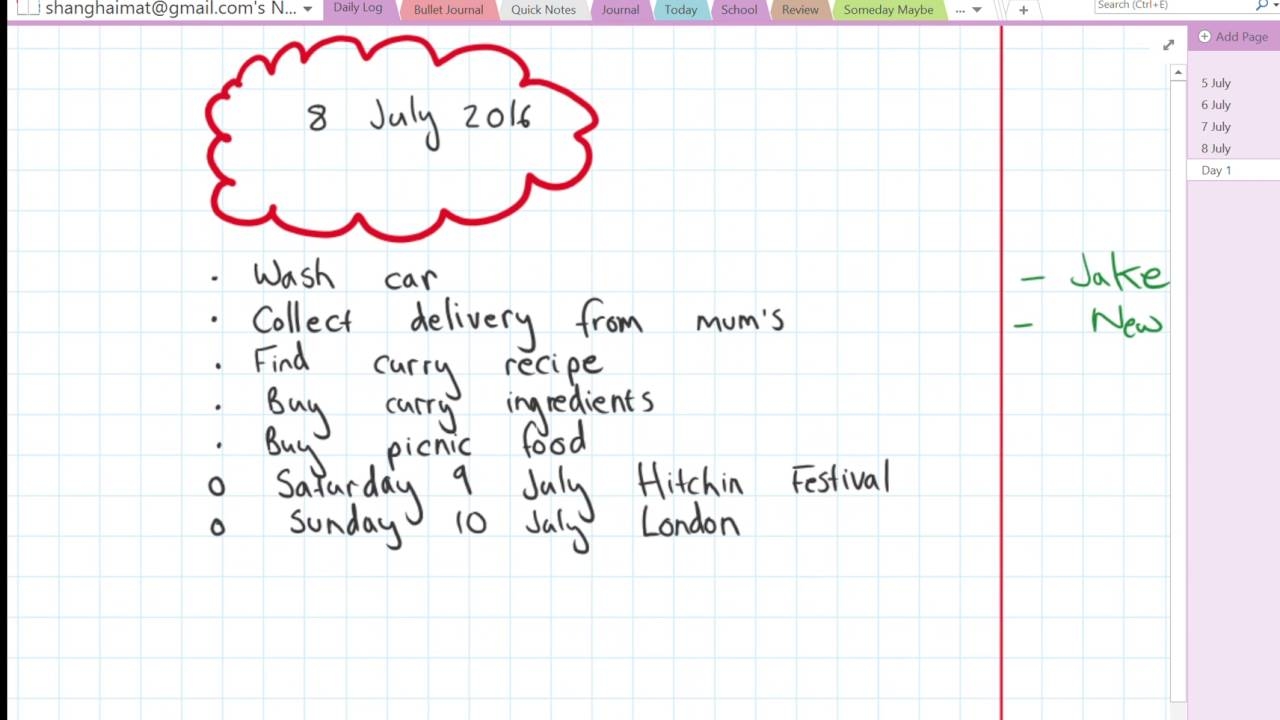 shanghaimat@gmail.com's N...
Daily Log
Bullet Journal
Quick Notes
Journal
Today
School
Review
Someday Maybe
...
+
Search (Ctrl+E)
Add Page
5 July
6 July
7 July
8 July
Day 1
8 July 2016
· Wash car
· Collect delivery from mum's
· Find curry recipe
· Buy curry ingredients
· Buy picnic food
o Saturday 9 July Hitchin Festival
o Sunday 10 July London
- Jake
- New